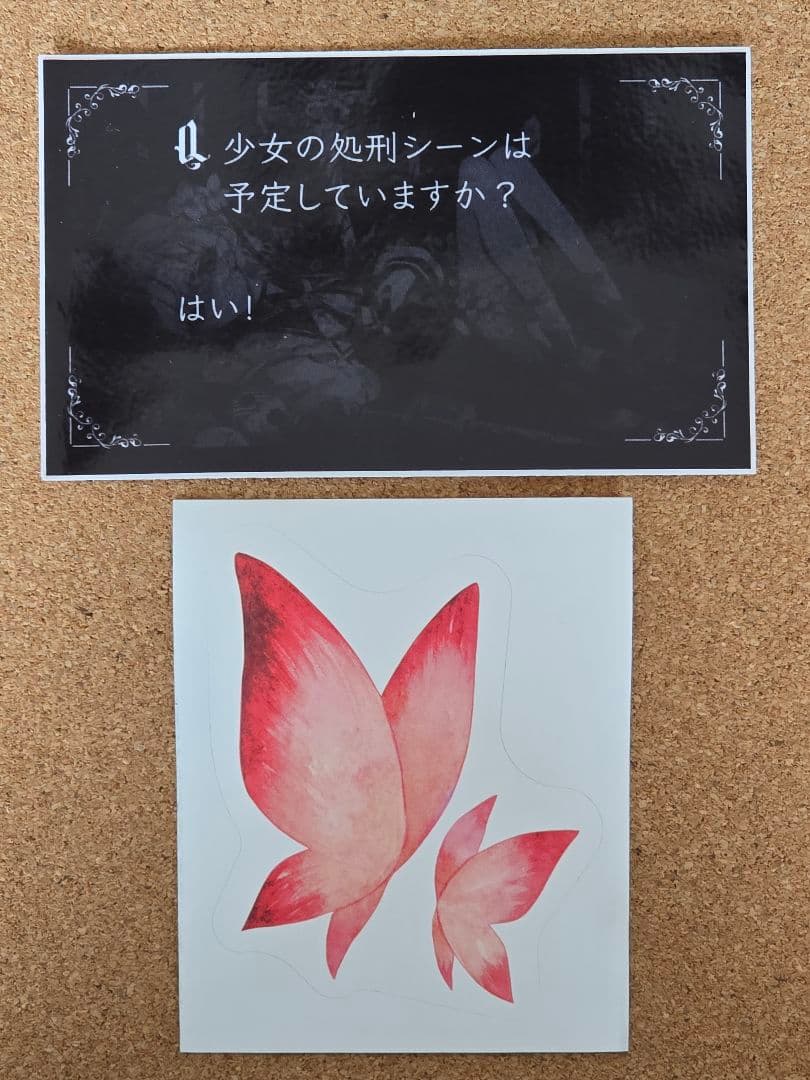 Q 少女の処刑シーンは
予定していますか？
はい！